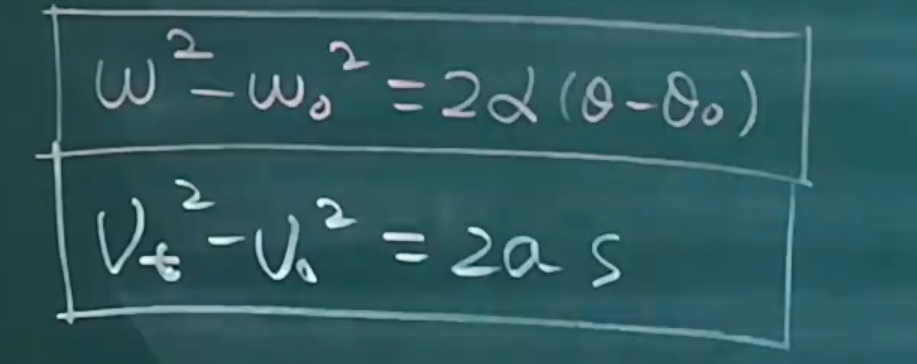 ω² - ω₀² = 2α(θ - θ₀)
Vₜ² - V₀² = 2as